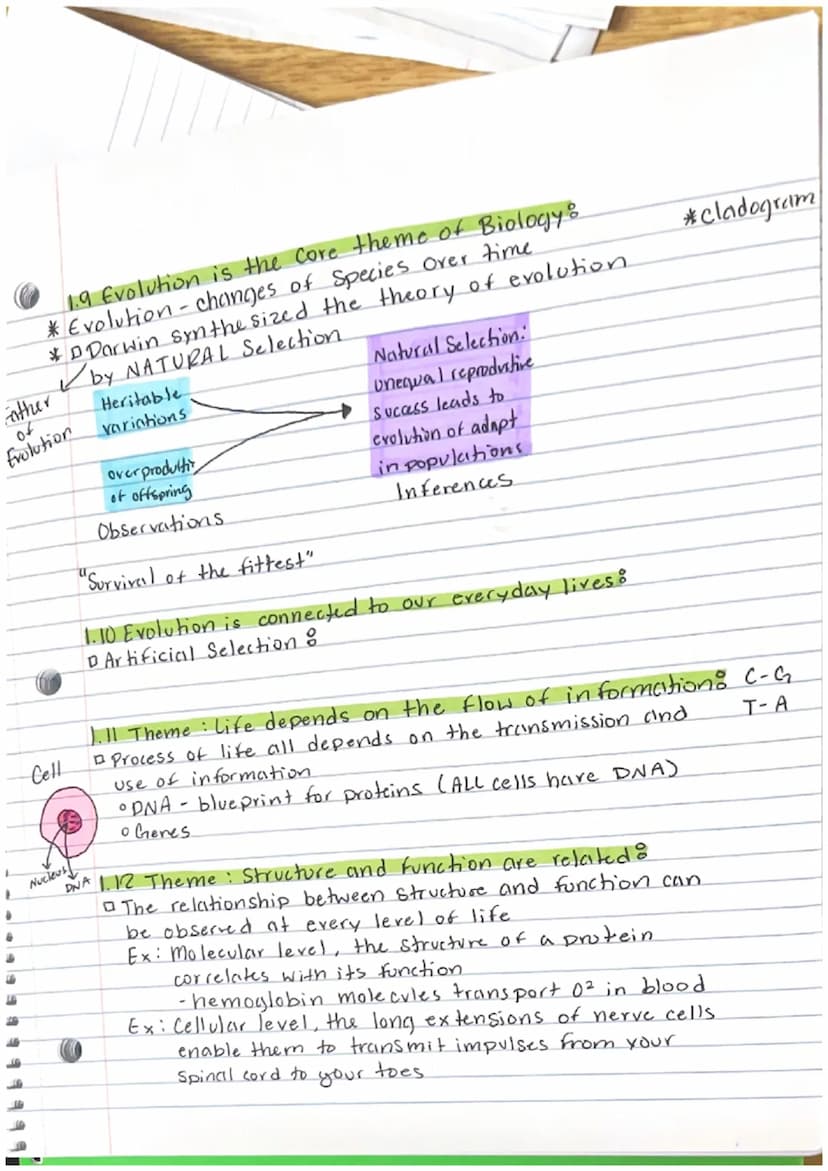 *cladogram
1.9 Evolution is the core theme of Biology:
* Evolution - changes of species over time
* Darwin synthesized the theory of evolution
by NATURAL Selection
Father
of
Evolution
Heritable
variations
overproductin
of offspring
Observations
Natural Selection:
unequal reproductive
success leads to
evolution of adapt
in populations
Inferences
"Survival of the fittest"
1.10 Evolution is connected to our everyday lives:
Artificial Selection:
1.11 Theme: Life depends on the flow of information:
C-G
T-A
Process of life all depends on the transmission and
use of information
DNA - blueprint for proteins (ALL cells have DNA)
Genes
Cell
Nucleus
DNA
1.12 Theme: Structure and function are related:
The relationship between structure and function can
be observed at every level of life
Ex: Molecular level, the structure of a protein
correlates with its function
- hemoglobin molecules transport O² in blood
Ex: Cellular level, the long extensions of nerve cells
enable them to transmit impulses from your
spinal cord to your toes